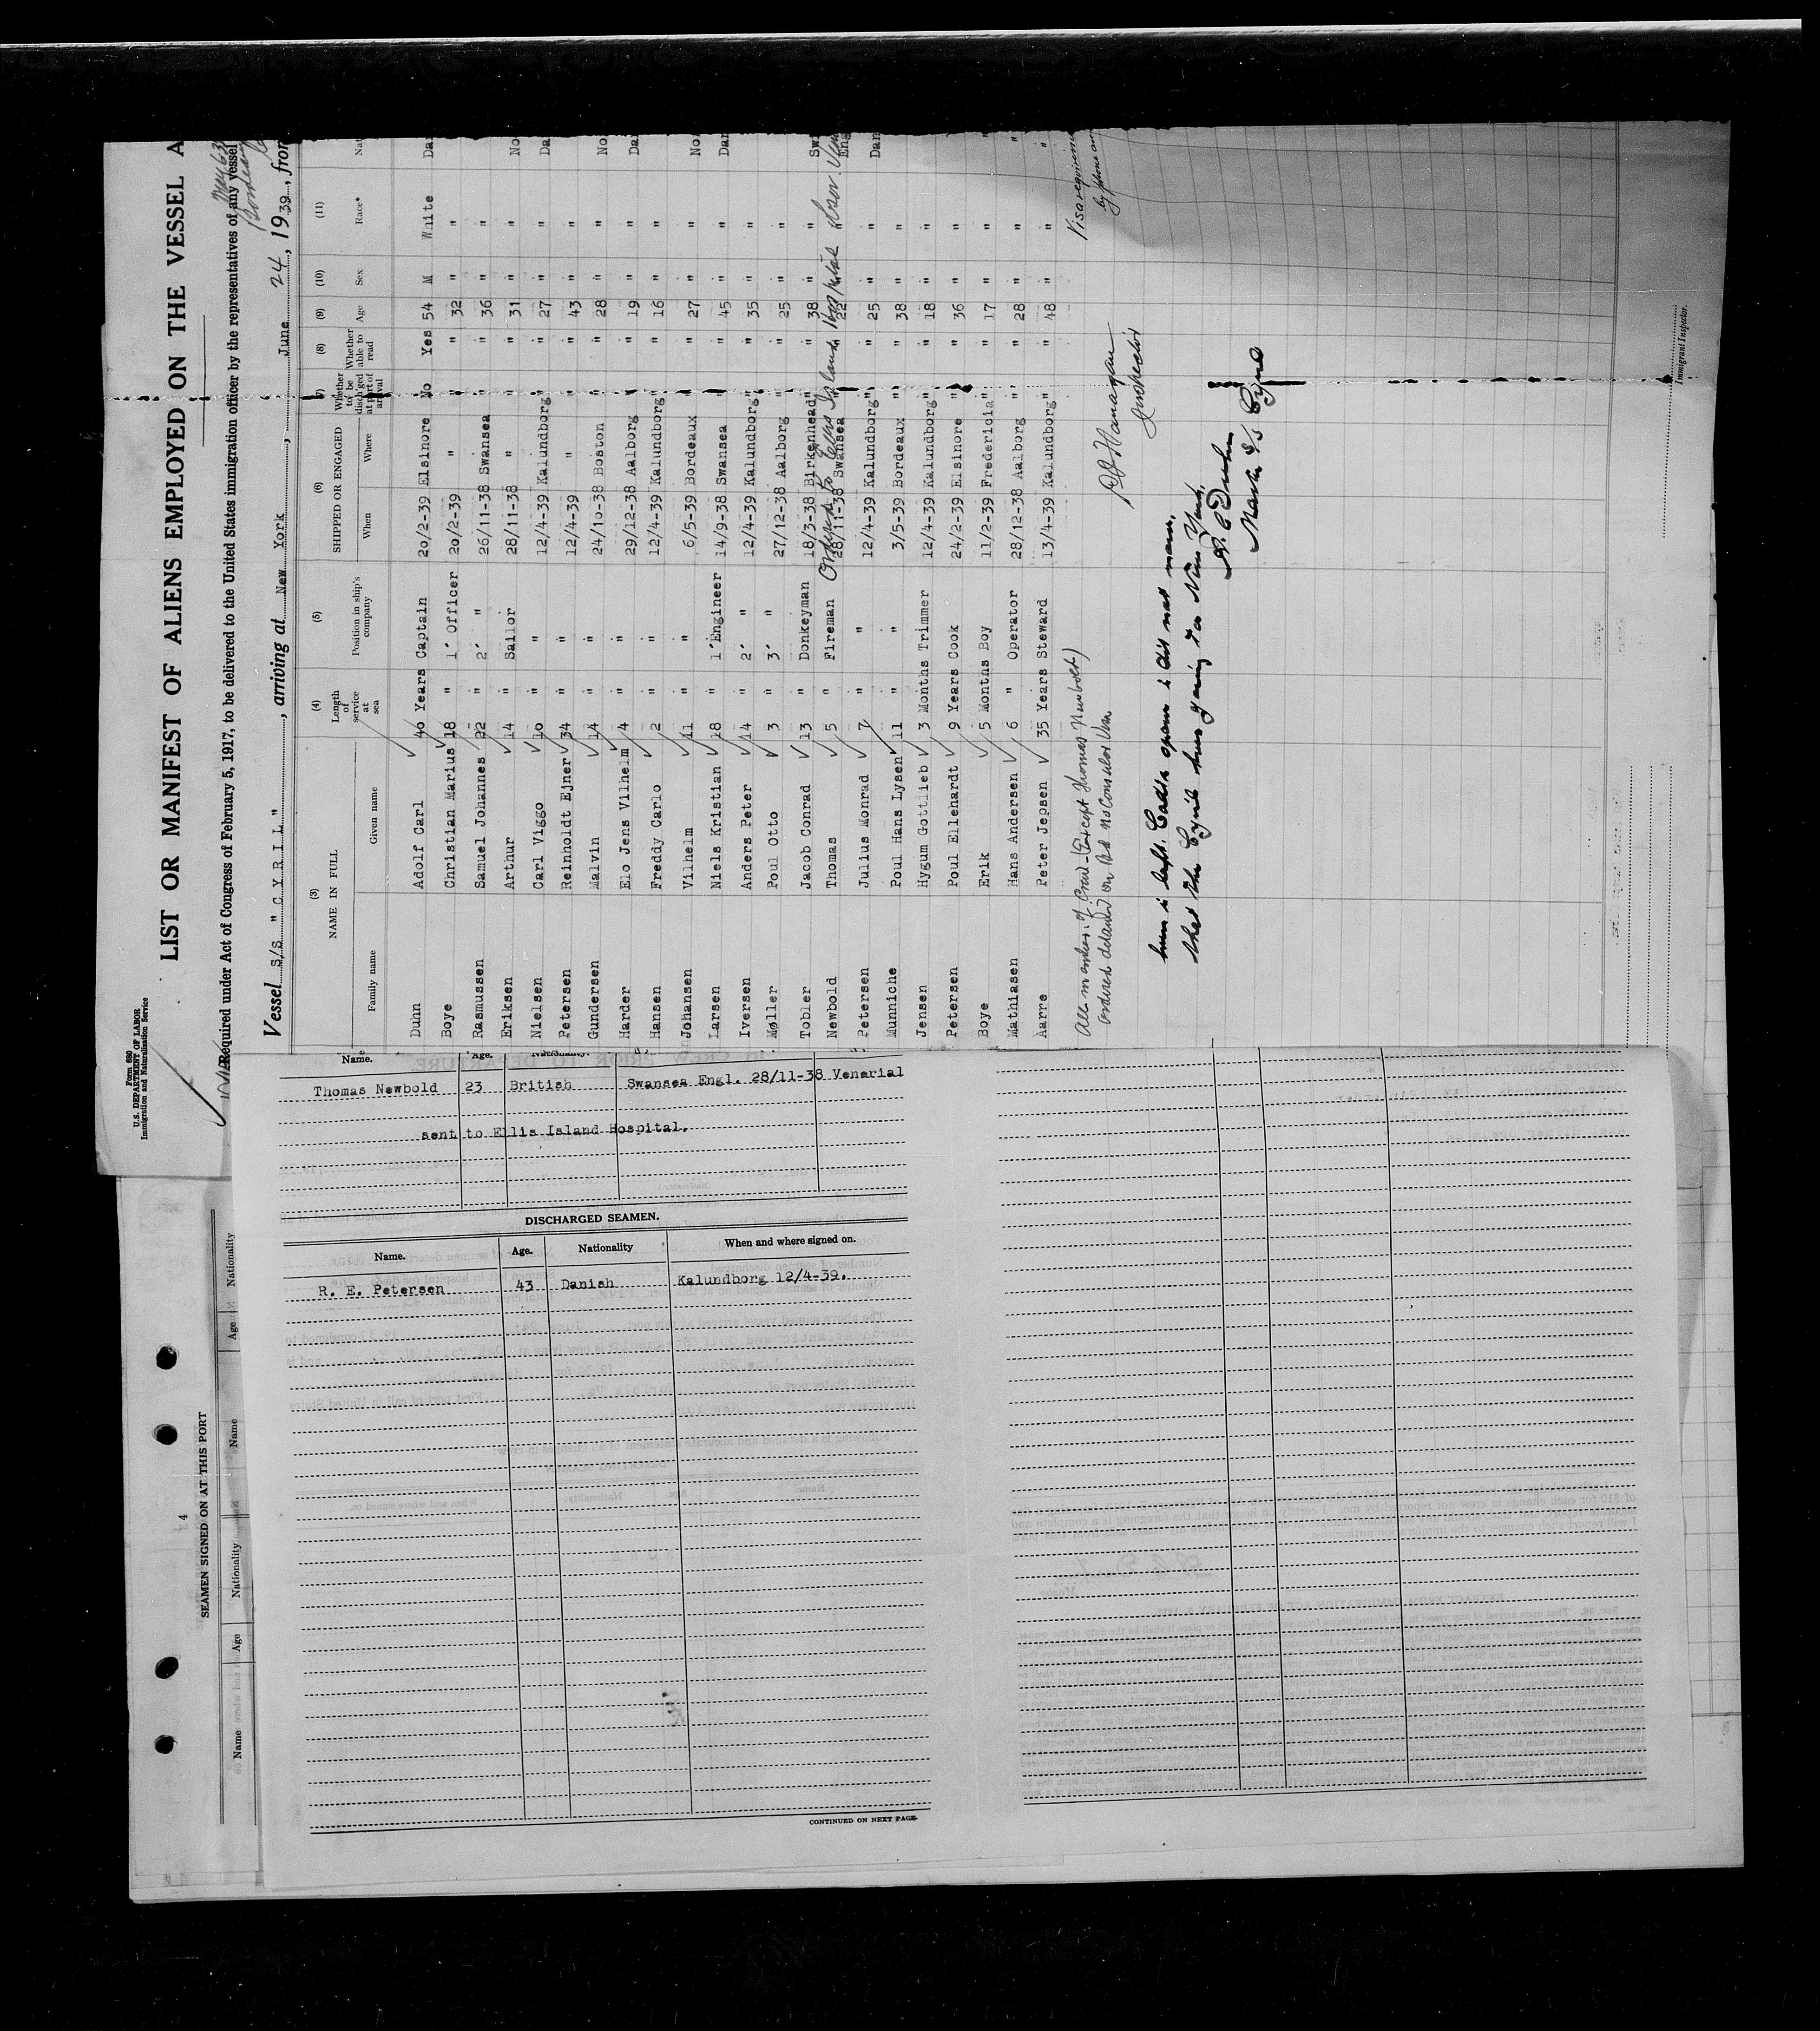 Form 680
U.S. DEPARTMENT OF LABOR
Immigration and Naturalization Service
LIST OR MANIFEST OF ALIENS EMPLOYED ON THE VESSEL A
Required under Act of Congress of February 5, 1917, to be delivered to the United States immigration officer by the representatives of any vessel
Vessel S/S "CYRIL", arriving at New York, June 24, 1939, from
(3) (4) (5) (6) (7) (8) (9) (10) (11)
NAME IN FULL Length of service at sea Position in ship's company SHIPPED OR ENGAGED Whether to be discharged at port of arrival Whether able to read Age Sex Race* Nat
Family name Given name When Where
Dunn Adolf Carl 40 Years Captain 20/2-39 Elsinore No Yes 54 M White Da
Boye Christian Marius 18 " 1' Officer 20/2-39 " " " 32 " "
Rasmussen Samuel Johannes 22 " 2' " 26/11-38 Swansea " " 36 " "
Eriksen Arthur 14 " Sailor 28/11-38 " " " 31 " " No
Nielsen Carl Viggo 10 " " 12/4-39 Kalundborg " " 27 " " Da
Petersen Reinholdt Ejner 34 " " 12/4-39 " " " 43 " "
Gundersen Malvin 14 " " 24/10-38 Boston " " 28 " " No
Harder Elo Jens Vilhelm 4 " " 29/12-38 Aalborg " " 19 " " Da
Hansen Freddy Carlo 2 " " 12/4-39 Kalundborg " " 16 " "
Johansen Vilhelm 11 " " 6/5-39 Bordeaux " " 27 " " No
Larsen Niels Kristian 18 " 1'Engineer 14/9-38 Swansea " " 45 " " Dan
Iversen Anders Peter 14 " 2' " 12/4-39 Kalundborg " " 35 " "
Møller Poul Otto 3 " 3' " 27/12-38 Aalborg " " 25 " "
Tobler Jacob Conrad 13 " Donkeyman 18/3-38 Birkenhead " " 38 " " Sw
Newbold Thomas 5 " Fireman 28/11-38 Swansea " " 22 " " Eng
Ordered to Ellis Island Hospital
Petersen Julius Monrad 7 " " 12/4-39 Kalundborg " " 25 " " Dan
Munniche Poul Hans Lysen 11 " " 3/5-39 Bordeaux " " 38 " "
Jensen Hygum Gottlieb 3 Months Trimmer 12/4-39 Kalundborg " " 18 " "
Petersen Poul Ellehardt 9 Years Cook 24/2-39 Elsinore " " 36 " "
Boye Erik 5 Months Boy 11/2-39 Fredericia " " 17 " " "
Mathiasen Hans Andersen 6 " Operator 28/12-38 Aalborg " " 28 " " "
Aarre Peter Jepsen 35 Years Steward 13/4-39 Kalundborg " " 48 " " "
All members of Crew (Except Thomas Newbold)
ordered detained on Bd no Consular Visa
Inspector
that the Cyril was going to New York.
Immigrant Inspector.
Name. Age. Nationality.
Thomas Newbold 23 British Swansea Engl. 28/11-38 Venerial
sent to Ellis Island Hospital.
DISCHARGED SEAMEN.
Name. Age. Nationality When and where signed on.
R. E. Petersen 43 Danish Kalundborg 12/4-39.
CONTINUED ON NEXT PAGE.
4
SEAMEN SIGNED ON AT THIS PORT
Name Age Nationality Name Age Nationality